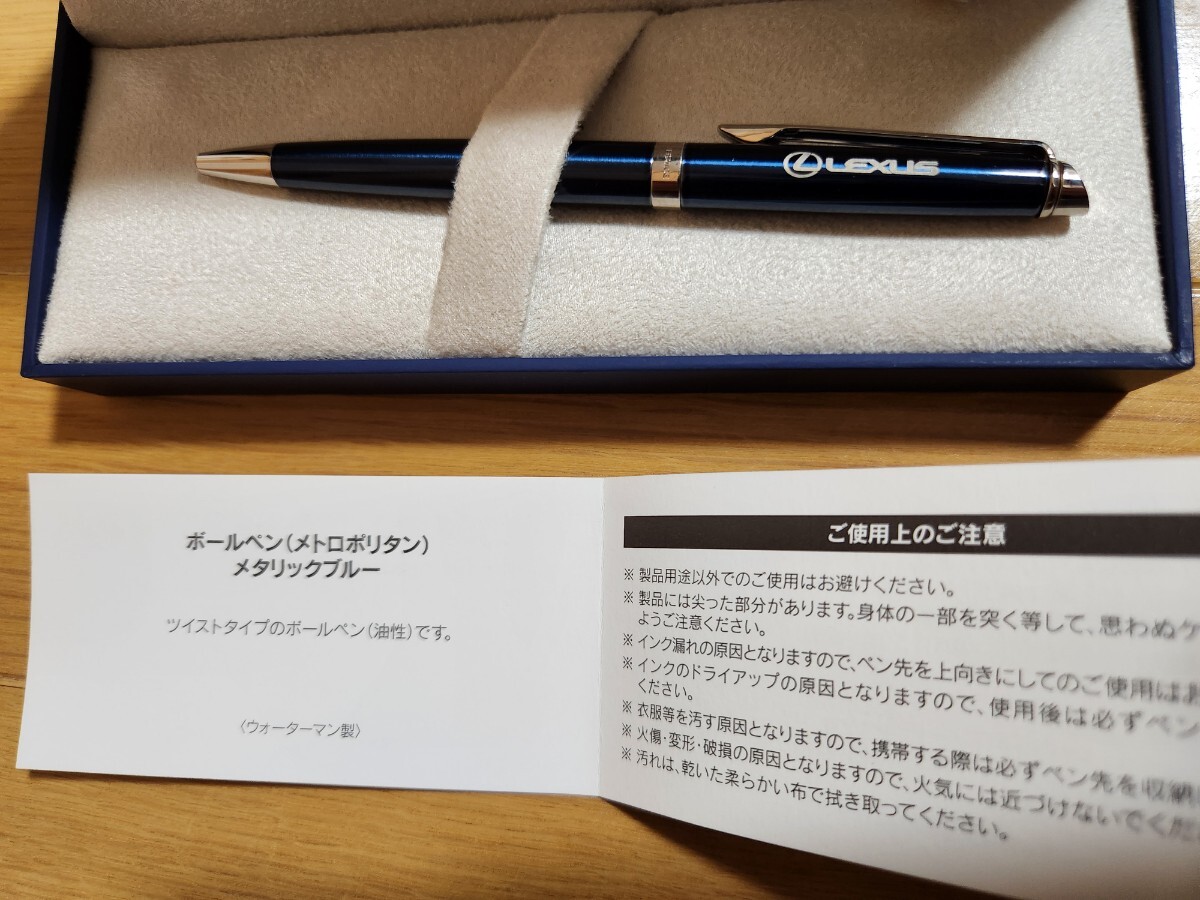 LEXUS
ボールペン(メトロポリタン)
メタリックブルー
ツイストタイプのボールペン(油性)です。
〈ウォーターマン製〉
ご使用上のご注意
※ 製品用途以外でのご使用はお避けください。
※ 製品には尖った部分があります。身体の一部を突く等して、思わぬケ
ようご注意ください。
※ インク漏れの原因となりますので、ペン先を上向きにしてのご使用はお
※ インクのドライアップの原因となりますので、使用後は必ずペン
ください。
※ 衣服等を汚す原因となりますので、携帯する際は必ずペン先を収納
※ 火傷・変形・破損の原因となりますので、火気には近づけないでくだ
※ 汚れは、乾いた柔らかい布で拭き取ってください。